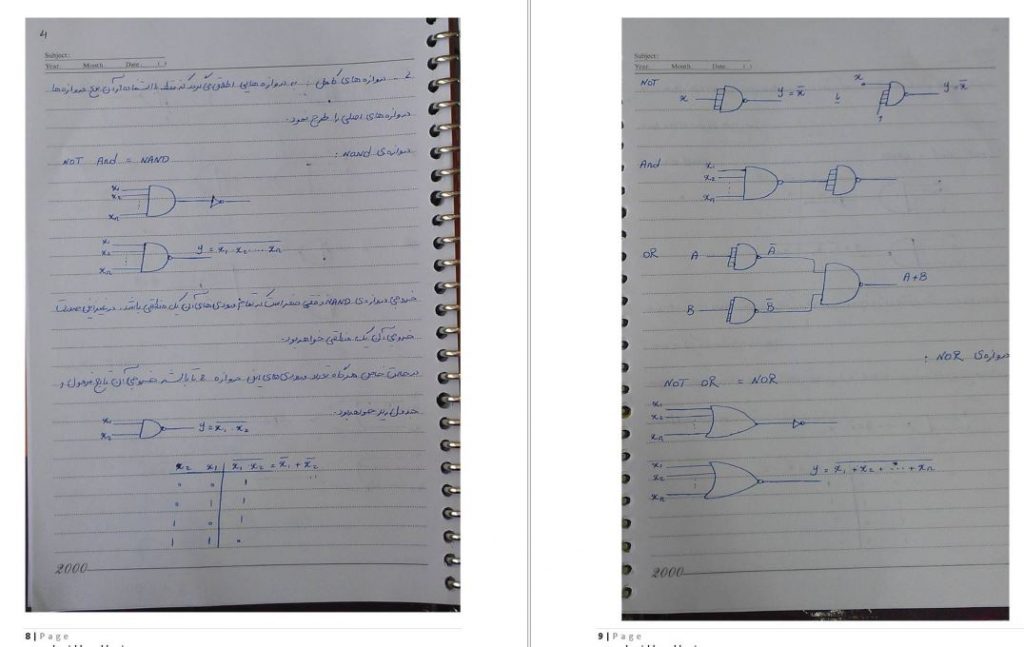 4
Subject:
Year. Month. Date. ( )
2 - دروازه های کامل : به دروازه هایی اطلاق می گردد که فقط با استفاده از آن نوع دروازه ها
دروازه های اصلی را طرح نمود.
دروازه ی NAND :
NOT And = NAND
x₁
x₂
xₙ
x₁
x₂
xₙ
y = x̅₁ x₂ .... xₙ
خروجی دروازه ی NAND وقتی صفر است که تمام ورودی های آن یک منطقی باشد. در غیر این صورت
خروجی آن یک منطقی خواهد بود.
در حالت خاص هرگاه تعداد ورودی های این دروازه 2 تا باشد خروجی آن تابع فرمول و
جدول زیر خواهد بود.
x₁
x₂
y = \overline{x₁ x₂}
x₂ x₁ \overline{x₁ x₂} = x̄₁ + x̄₂
0 0 1
0 1 1
1 0 1
1 1 0
2000
8 | Page
Subject:
Year. Month. Date. ( )
NOT
x y = x̄ یا x 1 y = x̄
And
x₁
x₂
xₙ
OR A Ā
A+B
B B̄
دروازه ی NOR :
NOT OR = NOR
x₁
x₂
xₙ
x₁
x₂
xₙ
y = \overline{x₁ + x₂ + ... + xₙ}
2000
9 | Page